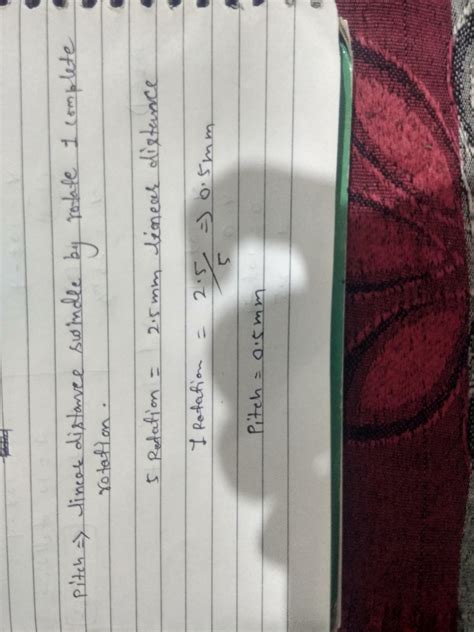 Pitch => linear distance swindle by rotate 1 complete
rotation.
5 Rotation = 2.5mm linear distance
1 Rotation = 2.5/5 => 0.5mm
Pitch = 0.5mm